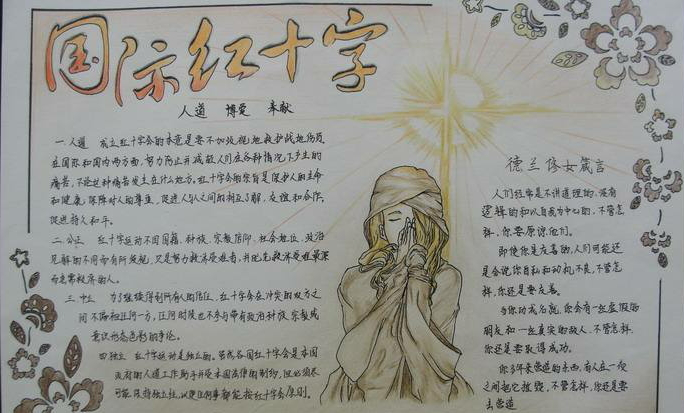 国际红十字
人道 博爱 奉献
一.人道 成立红十字会的本意是要不加歧视地救护战地伤员
在国际和国内两方面,努力防止并减轻人们在各种情况下产生的
痛苦,不论这种痛苦发生在什么地方。红十字会的宗旨是保护人的生命
和健康,保障对人的尊重,促进人与人之间的相互了解,友谊和合作,
促进持久和平。
二.公正 红十字运动不因国籍、种族、宗教信仰、社会地位、政治
见解的不同而有所歧视,只是努力救济受难者,并优先救济受难最深
而急需救济的人。
三.中立 为了继续得到所有人的信任,红十字会在冲突的双方之
间不偏袒任何一方,任何时候也不参与带有政治种族、宗教或
意识形态色彩的争论。
四.独立 红十字运动是独立的。虽然各国红十字会是本国
政府的人道工作助手并受本国法律的制约,但必须尽
可能保持独立性,以便任何事都能按红十字会原则。
德兰修女箴言
人们经常是不讲道理的、没有
逻辑的和以自我为中心的,不管怎
样,你要原谅他们。
即使你是友善的,人们可能还
是会说你自私和动机不良,不管怎
样,你还是要友善。
当你功成名就,你会有一些虚假的
朋友和一些真实的敌人,不管怎样
你还是要取得成功。
你多年来营造的东西,有人在一夜
之间把它摧毁,不管怎样,你还是要
去营造